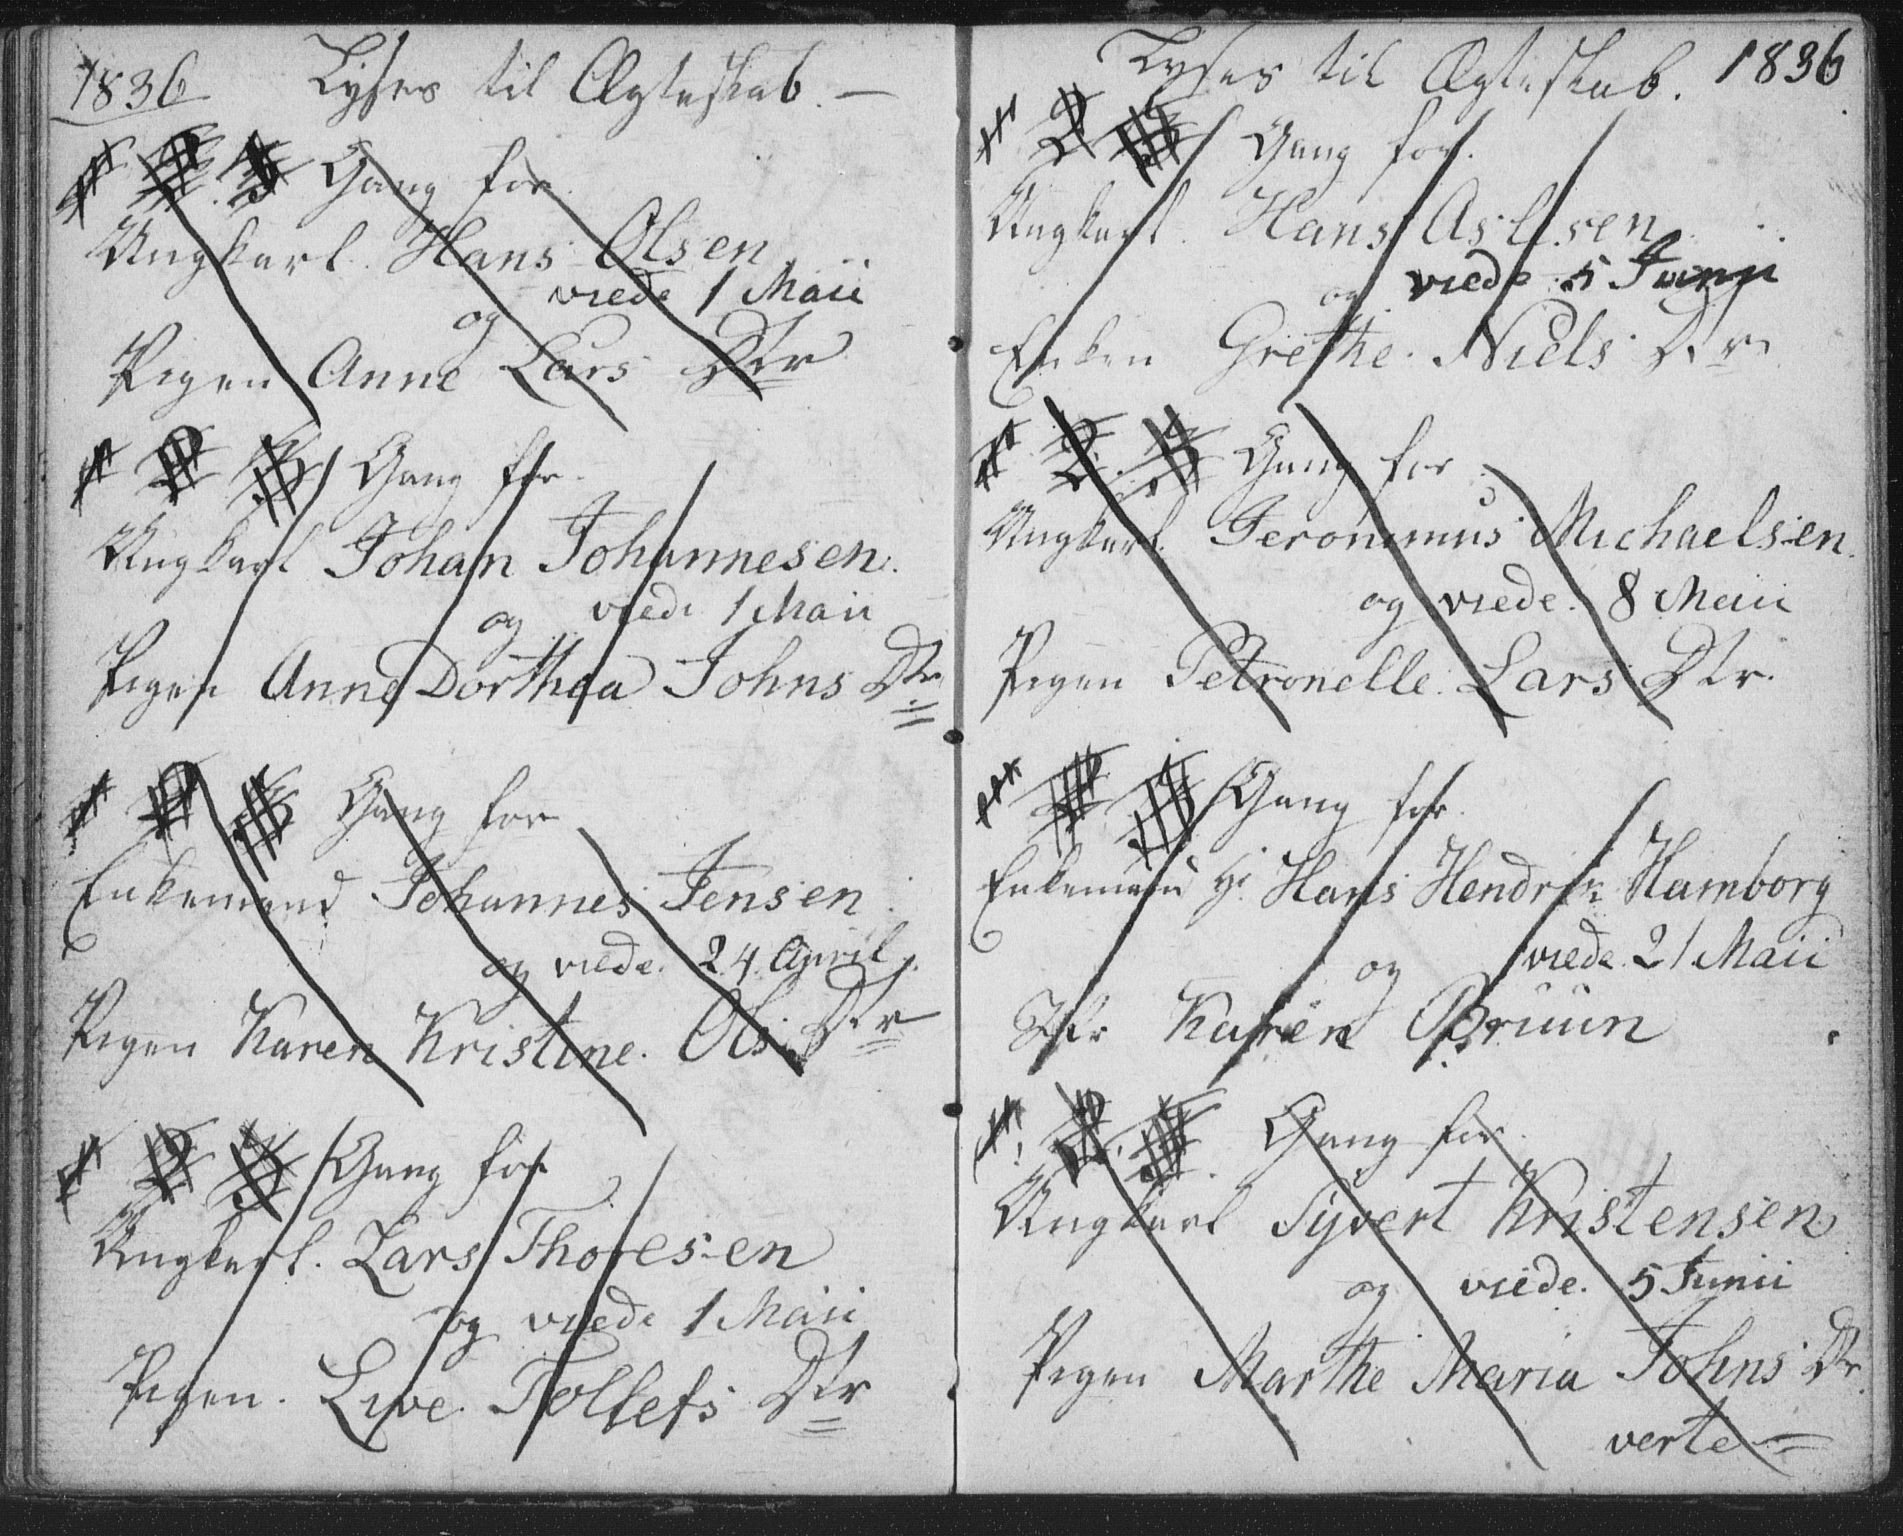 1836 Lyses til Ægteskab. —
1 2 3 Gang for
Ungkarl. Hans Olsen
viede 1 Maii
og
Pigen Anne Lars Dtr
1 2 3 Gang for
Ungkarl Johan Johannesen.
og viede 1 Maii
Pigen Anne Dorthea Johns Dtr
1 2 3 Gang for
Enkemand Johannes Jensen
og viede. 24. April.
Pigen Karen Kristine. Ols. Dtr
1 2 3 Gang for
Ungkarl. Lars Thoresen
og viede 1 Maii
Pigen. Live. Tollefs Dtr
Lyses til Ægteskab. 1836
1 2 3 Gang for.
Ungkarl. Hans Aslesen
og viede 5 Junii
Enken Grethe. Niels Dtr
1 2. 3 Gang for
Ungkarl. Jeronimus Michaelsen.
og viede. 8 Maii
Pigen Petronelle. Lars Dtr.
1 2 3 Gang for.
Enkemand Hr. Hans Hendrik Hamborg
viede. 21 Maii
og
Jfr Karen Bruun
1 2. 3. Gang for.
Ungkarl Syvert Kristensen
og viede. 5 Junii
Pigen Marthe Maria Johns Dtr.
verte